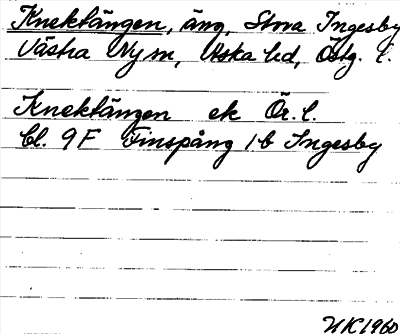 Knektängen, äng, Stora Ingesby
Västra Ny sn, Aska hd, Östg. l.
Knektängen ek Ör. l.
Bl. 9F Finspång 1b Ingesby
UK 1960